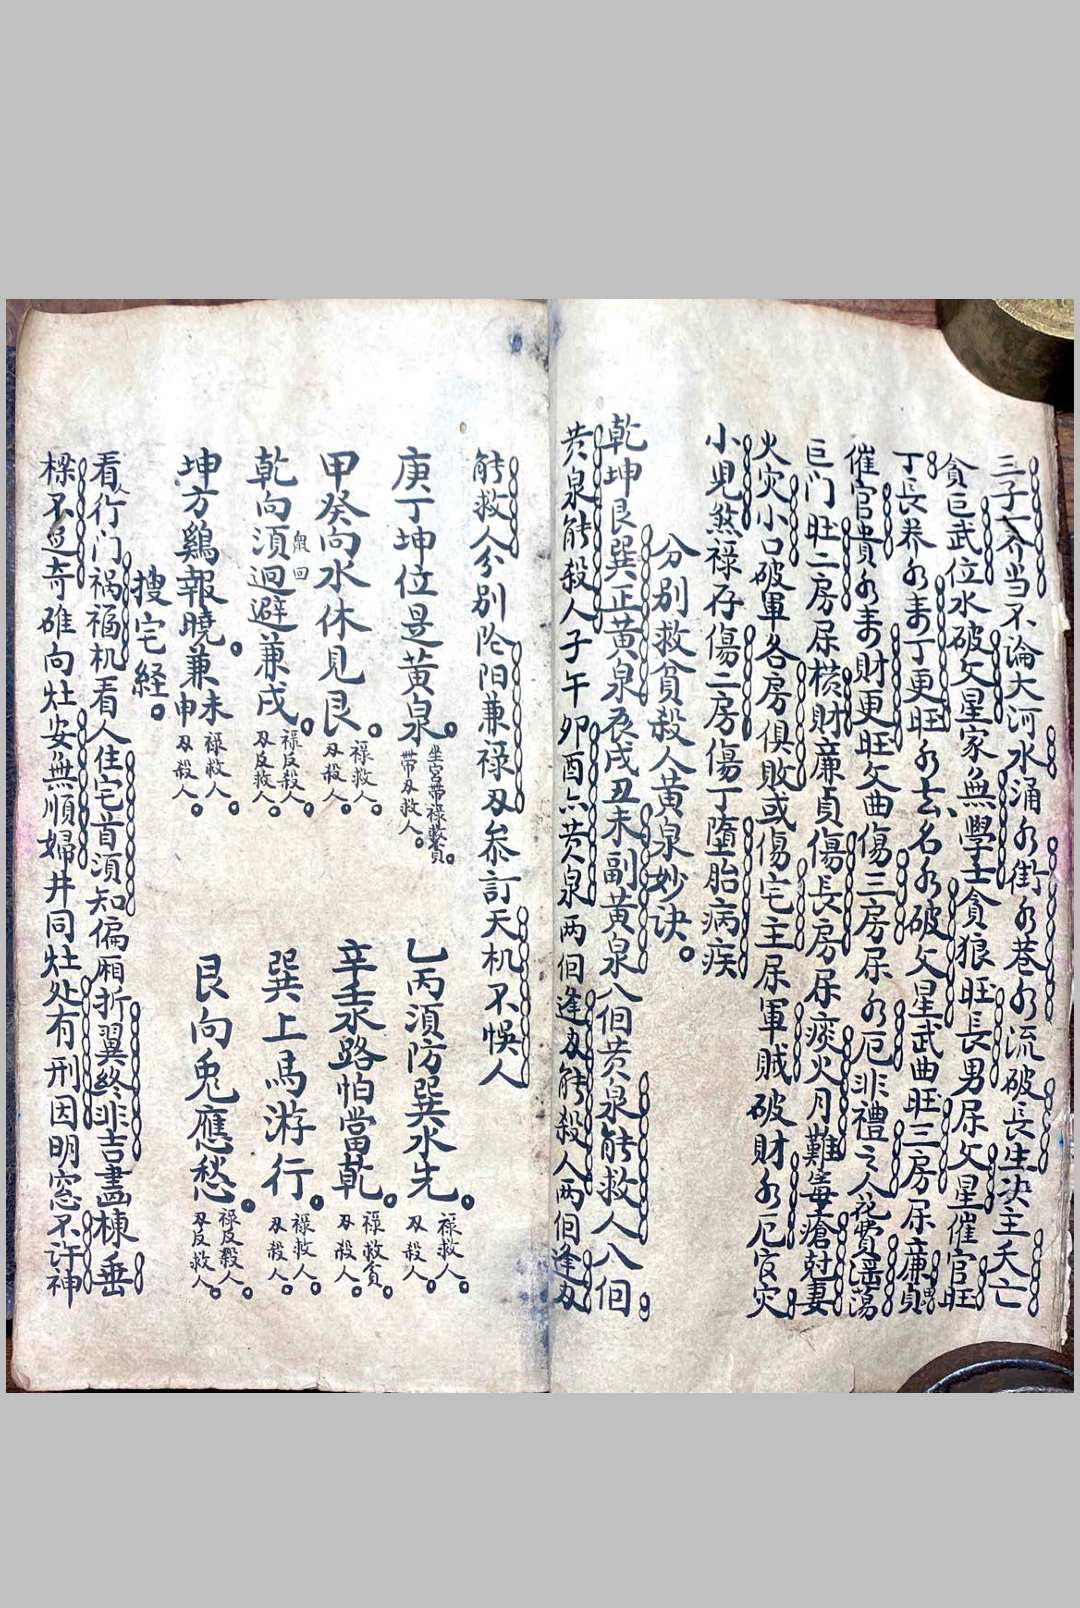 三子不齐当不論大河水涌水街水巷水流破長生決主夭亡
貪巨武位水破文星家無學士貪狼旺長男屎文星催官旺
丁長养水来丁更旺水去名水破文星武曲旺三房屎廉貞
催官貴水来財更旺文曲傷三房屎水厄非禮之人花費淫荡
巨门旺二房屎横財廉貞傷長房屎痰火月難毒瘡尅妻
火灾小口破軍各房俱敗或傷宅主屎軍賊破財水厄官灾
小児煞禄存傷二房傷丁墮胎病疾
分别救貧殺人黄泉妙诀
乾坤艮巽正黄泉辰戌丑未副黄泉八個黄泉能救人八個
黄泉能殺人子午卯酉亦黄泉两個逢刄能殺人两個逢刄
能救人分别阴阳兼禄刄叅訂天机不悞人
庚丁坤位是黄泉 坐宫带禄救貧 带刄救人
乙丙須防巽水先 禄救人 刄殺人
甲癸向水休見艮 禄救人 刄殺人
辛壬水路怕當乾 禄救貧 刄殺人
乾向須迴避兼戌 禄反殺人 刄反救人
巽上馬游行 禄救人 刄殺人
坤方鷄報曉兼未申 禄救人 刄殺人
艮向兎應愁 禄反殺人 刄反救人
搜宅経
看人行门祸福机看人住宅首須知偏厢折翼終非吉畫棟垂
樑不足奇碓向灶安無順婦井同灶处有刑因明窓不许神